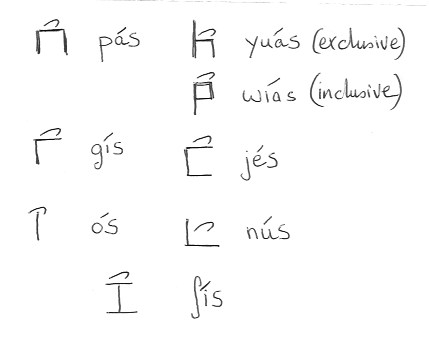 pás yuás (exclusive)
wíás (inclusive)
gís jés
ós nús
ʃís